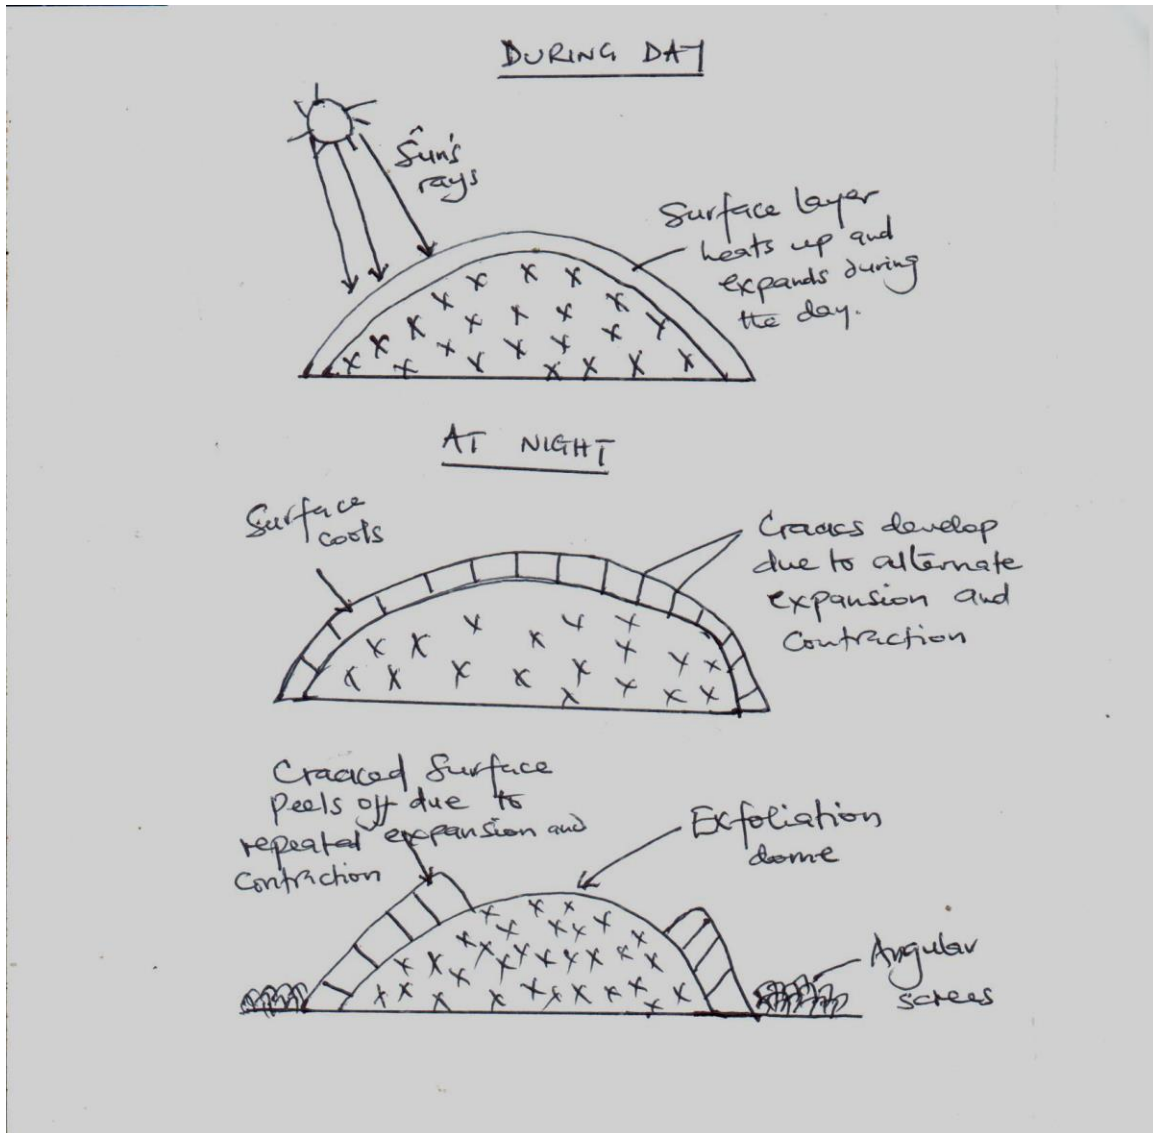 DURING DAY
Sun's
rays
Surface layer
heats up and
expands during
the day.
AT NIGHT
Surface
cools
Cracks develop
due to alternate
expansion and
contraction
Cracked Surface
peels off due to
repeated expansion and
contraction
Exfoliation
dome
Angular
screes